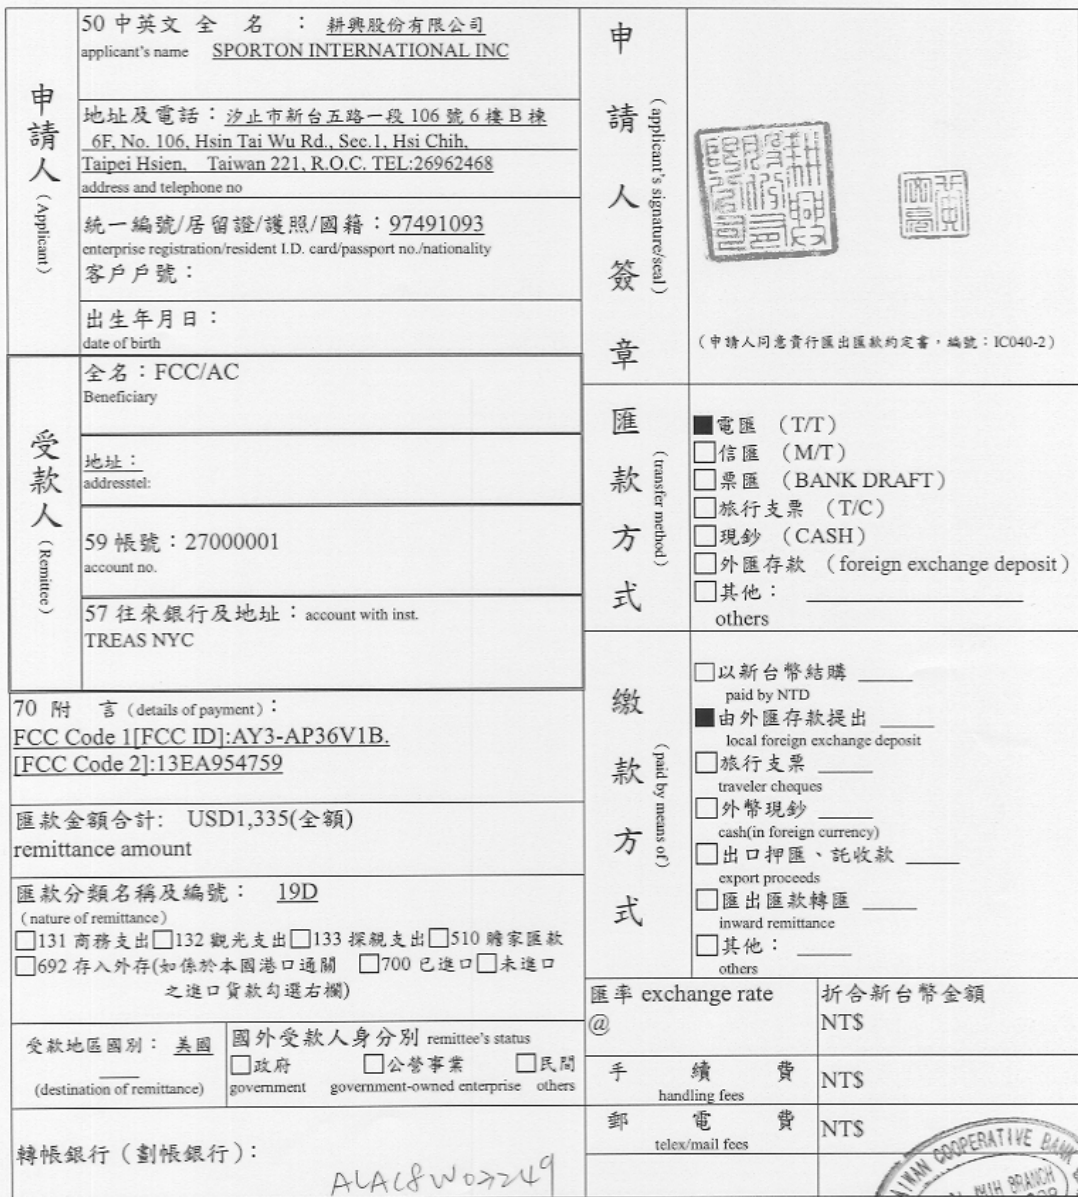 申請人
(Applicant)
50 中英文 全 名 : 耕興股份有限公司
applicant's name SPORTON INTERNATIONAL INC
地址及電話：汐止市新台五路一段 106 號 6 樓 B 棟
6F, No. 106, Hsin Tai Wu Rd., Sec.1, Hsi Chih,
Taipei Hsien, Taiwan 221, R.O.C. TEL:26962468
address and telephone no
統一編號/居留證/護照/國籍：97491093
enterprise registration/resident I.D. card/passport no./nationality
客戶戶號：
出生年月日：
date of birth
受款人
(Remittee)
全名：FCC/AC
Beneficiary
地址：
addresstel:
59 帳號：27000001
account no.
57 往來銀行及地址：account with inst.
TREAS NYC
70 附 言 (details of payment)：
FCC Code 1[FCC ID]:AY3-AP36V1B.
[FCC Code 2]:13EA954759
匯款金額合計: USD1,335(全額)
remittance amount
匯款分類名稱及編號： 19D
(nature of remittance)
□131 商務支出□132 觀光支出□133 探親支出□510 贍家匯款
□692 存入外存(如係於本國港口通關 □700 已進口□未進口
之進口貨款勾選右欄)
受款地區國別： 美國
(destination of remittance)
國外受款人身分別 remittee's status
□政府 □公營事業 □民間
government government-owned enterprise others
轉帳銀行（劃帳銀行）：
申請人簽章
(applicant's signature/seal)
（申請人同意貴行匯出匯款約定書，編號：IC040-2）
匯款方式
(transfer method)
■電匯 （T/T）
□信匯 （M/T）
□票匯 （BANK DRAFT）
□旅行支票 （T/C）
□現鈔 （CASH）
□外匯存款 （foreign exchange deposit）
□其他：
others
繳款方式
(paid by means of)
□以新台幣結購
paid by NTD
■由外匯存款提出
local foreign exchange deposit
□旅行支票
traveler cheques
□外幣現鈔
cash(in foreign currency)
□出口押匯、託收款
export proceeds
□匯出匯款轉匯
inward remittance
□其他：
others
匯率 exchange rate
@
折合新台幣金額
NT$
手 續 費
handling fees
NT$
郵 電 費
telex/mail fees
NT$
COOPERATIVE BANK
BRANCH